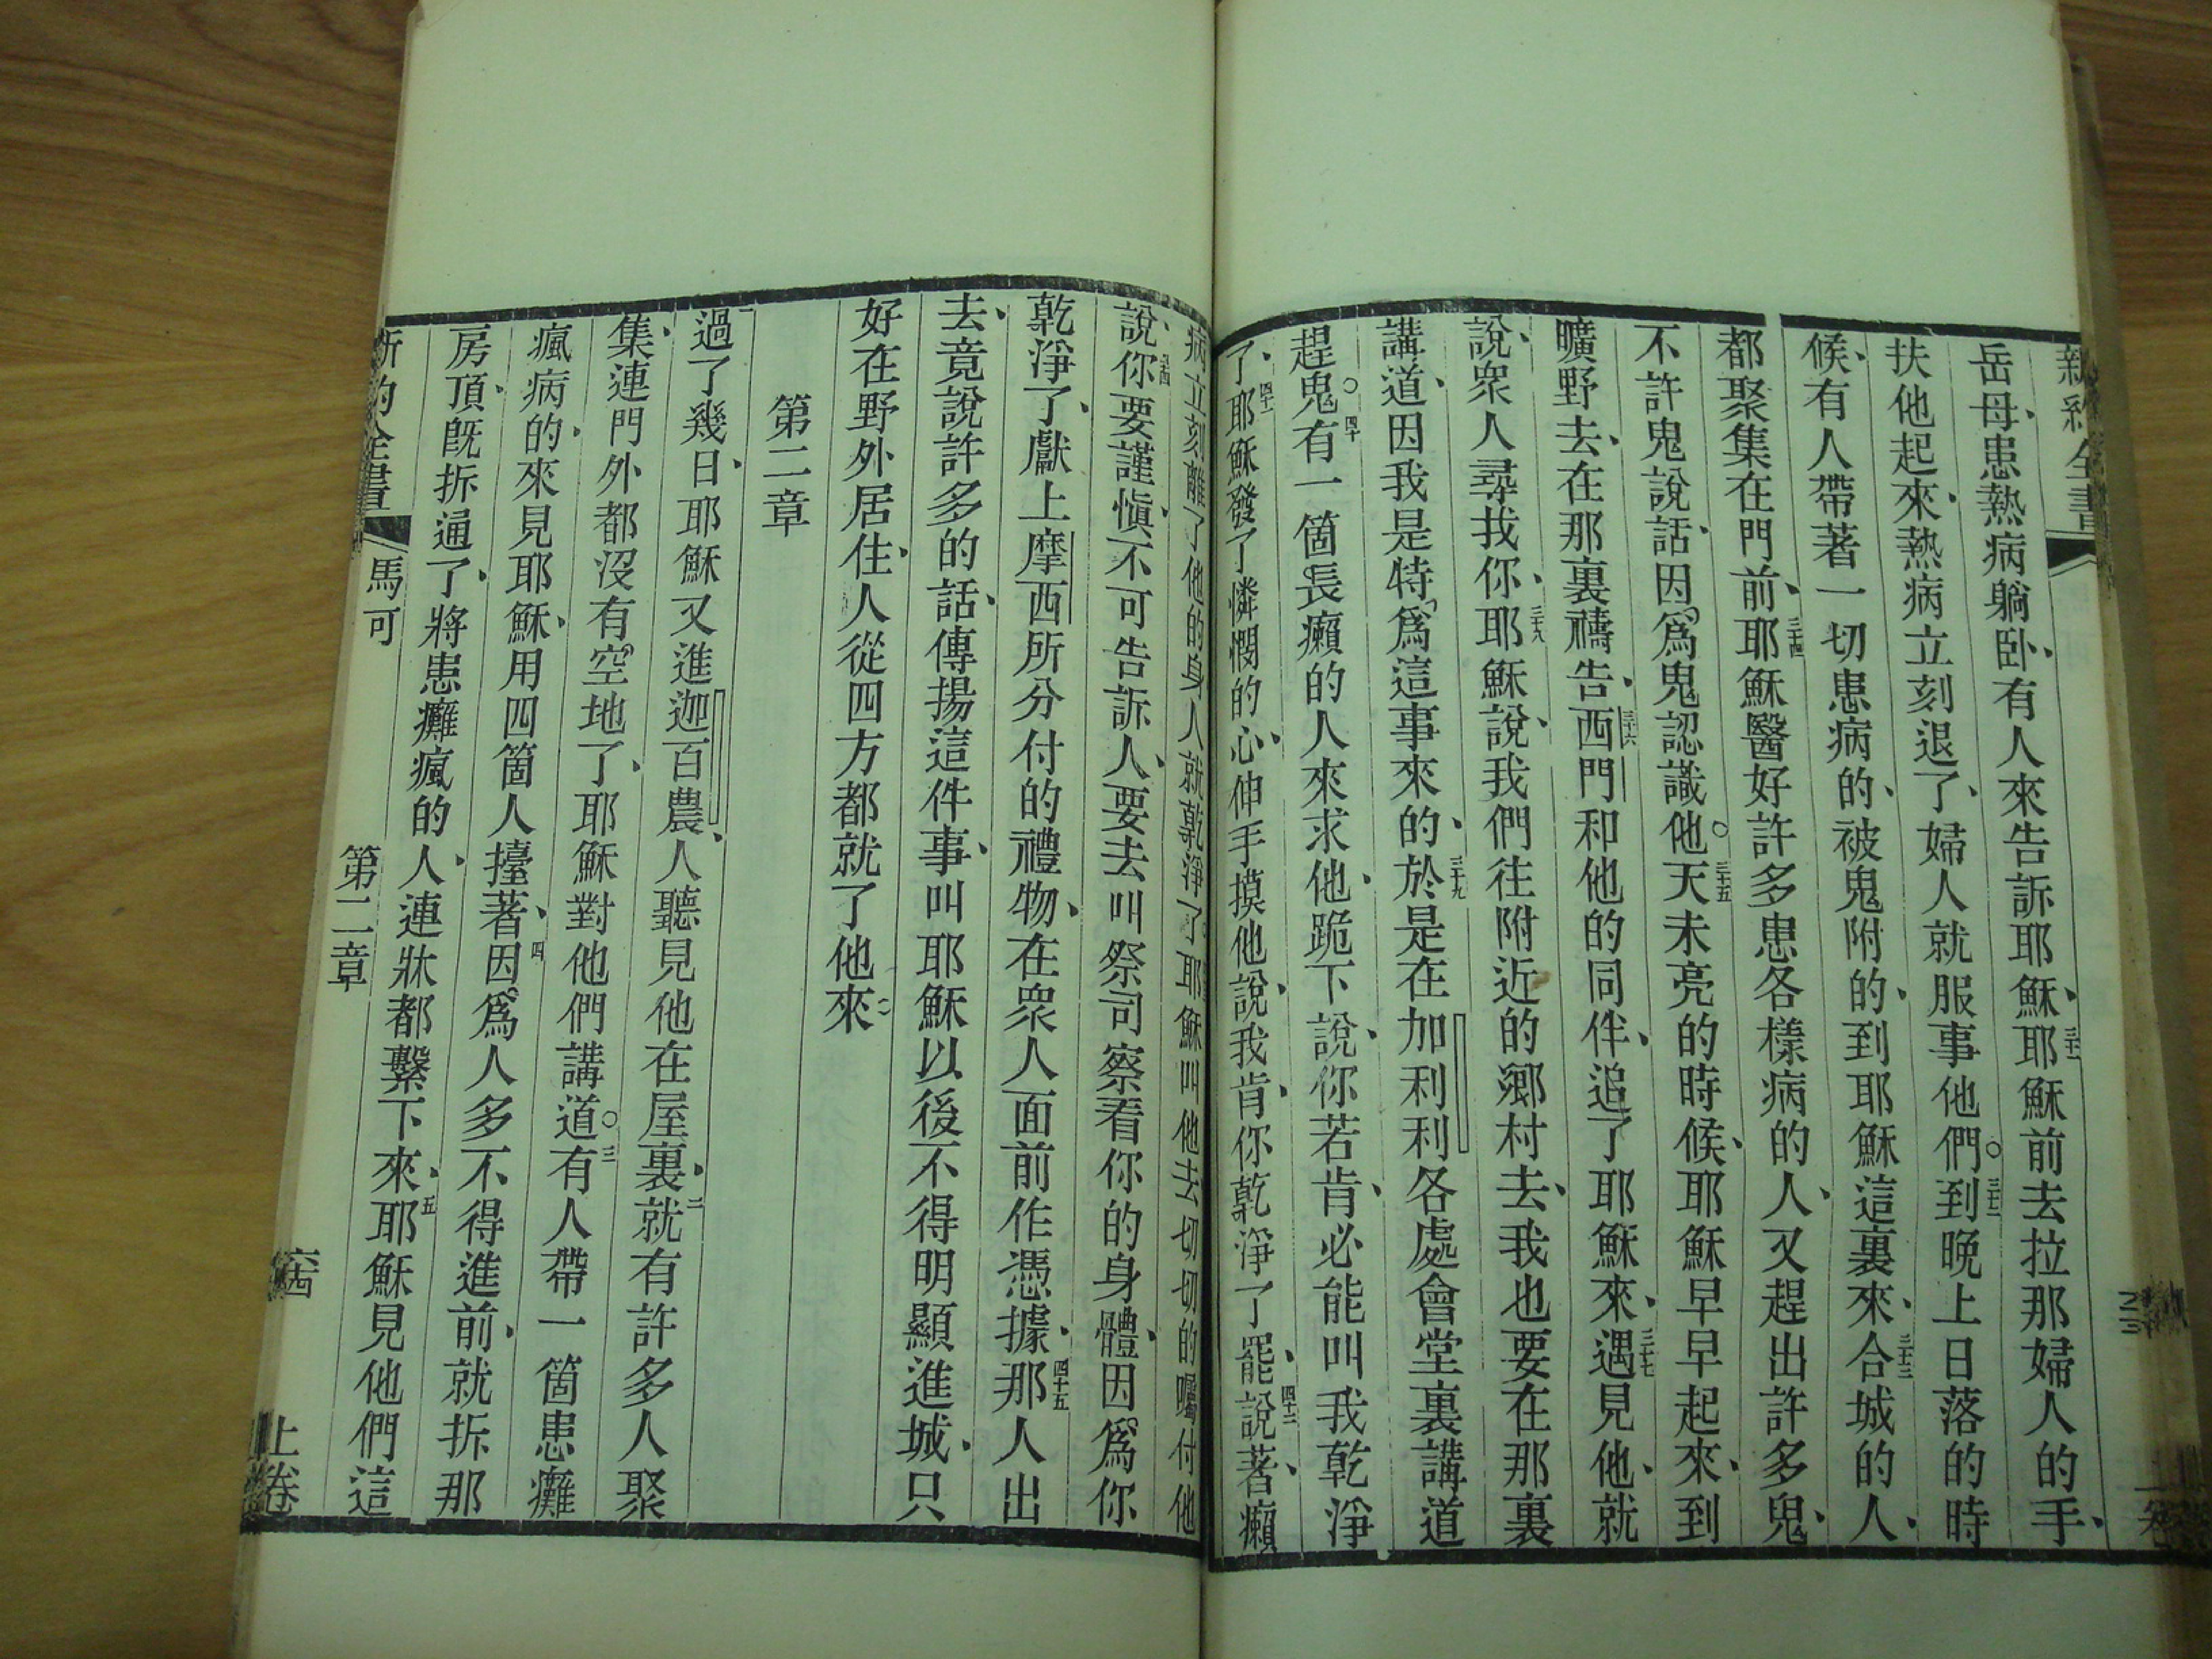 新約全書
岳母、患熱病躺卧、有人來告訴耶穌、三十一耶穌前去拉那婦人的手、
扶他起來、熱病立刻退了、婦人就服事他們。三十二到晚上日落的時
候、有人帶著一切患病的、被鬼附的、到耶穌這裏來、三十三合城的人、
都聚集在門前、三十四耶穌醫好許多患各樣病的人、又趕出許多鬼、
不許鬼說話、因爲鬼認識他。三十五天未亮的時候、耶穌早早起來、到
曠野去、在那裏禱告、三十六西門和他的同伴、追了耶穌來、三十七遇見他、就
說、衆人尋找你、耶穌說、我們往附近的鄉村去、我也要在那裏
講道、因我是特爲這事來的、三十九於是在加利利各處會堂裏講道
趕鬼。四十有一箇長癩的人來求他、跪下說、你若肯、必能叫我乾淨
了、四十一耶穌發了憐憫的心、伸手摸他、說、我肯、你乾淨了罷、四十二說著、癩
病立刻離了他的身、人就乾淨了、耶穌叫他去、切切的囑付他
說、四十四你要謹愼、不可告訴人、要去叫祭司察看你的身體、因爲你
乾淨了、獻上摩西所分付的禮物、在衆人面前作憑據、四十五那人出
去、竟說許多的話、傳揚這件事、叫耶穌以後不得明顯進城、只
好在野外居住、人從四方都就了他來
第二章
一過了幾日、耶穌又進迦百農、人聽見他在屋裏、二就有許多人聚
集、連門外都沒有空地了、耶穌對他們講道。三有人帶一箇患癱
瘋病的、來見耶穌、用四箇人擡著、四因爲人多不得進前、就拆那
房頂、旣拆通了、將患癱瘋的人、連牀都繫下來、五耶穌見他們這
新約全書 馬可 第二章 六十四 上卷